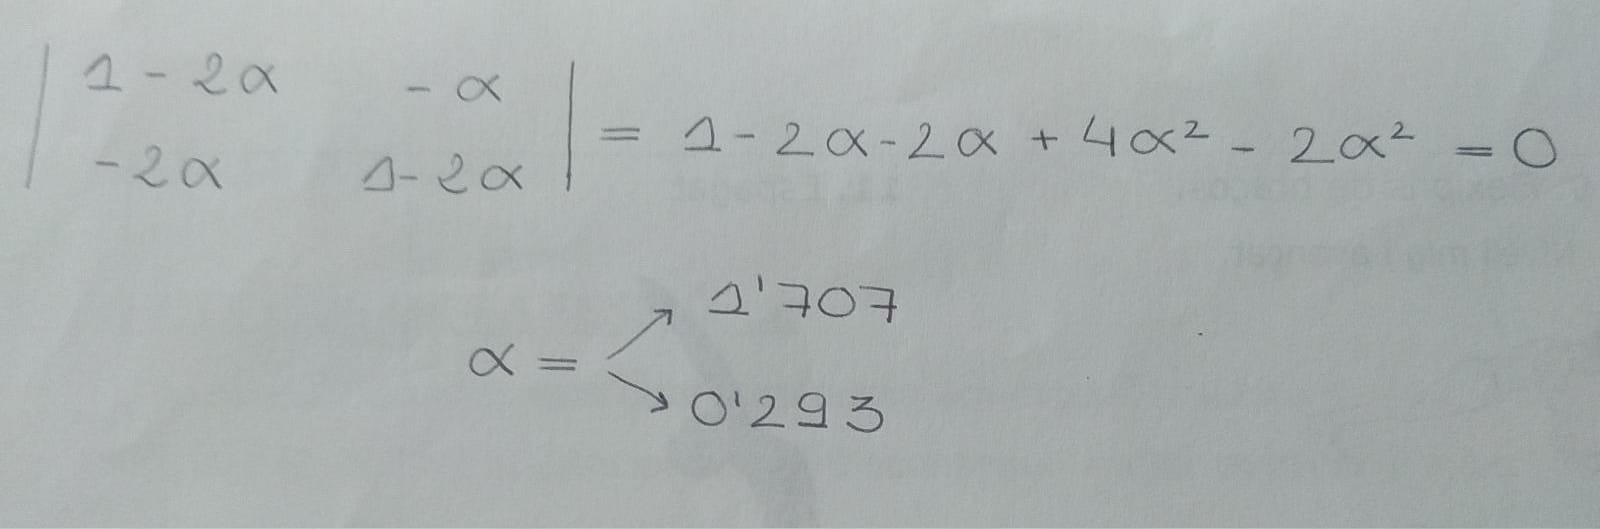 | 1 - 2α   - α |
| - 2α   1 - 2α | = 1 - 2α - 2α + 4α² - 2α² = 0
1'707
α =
0'293